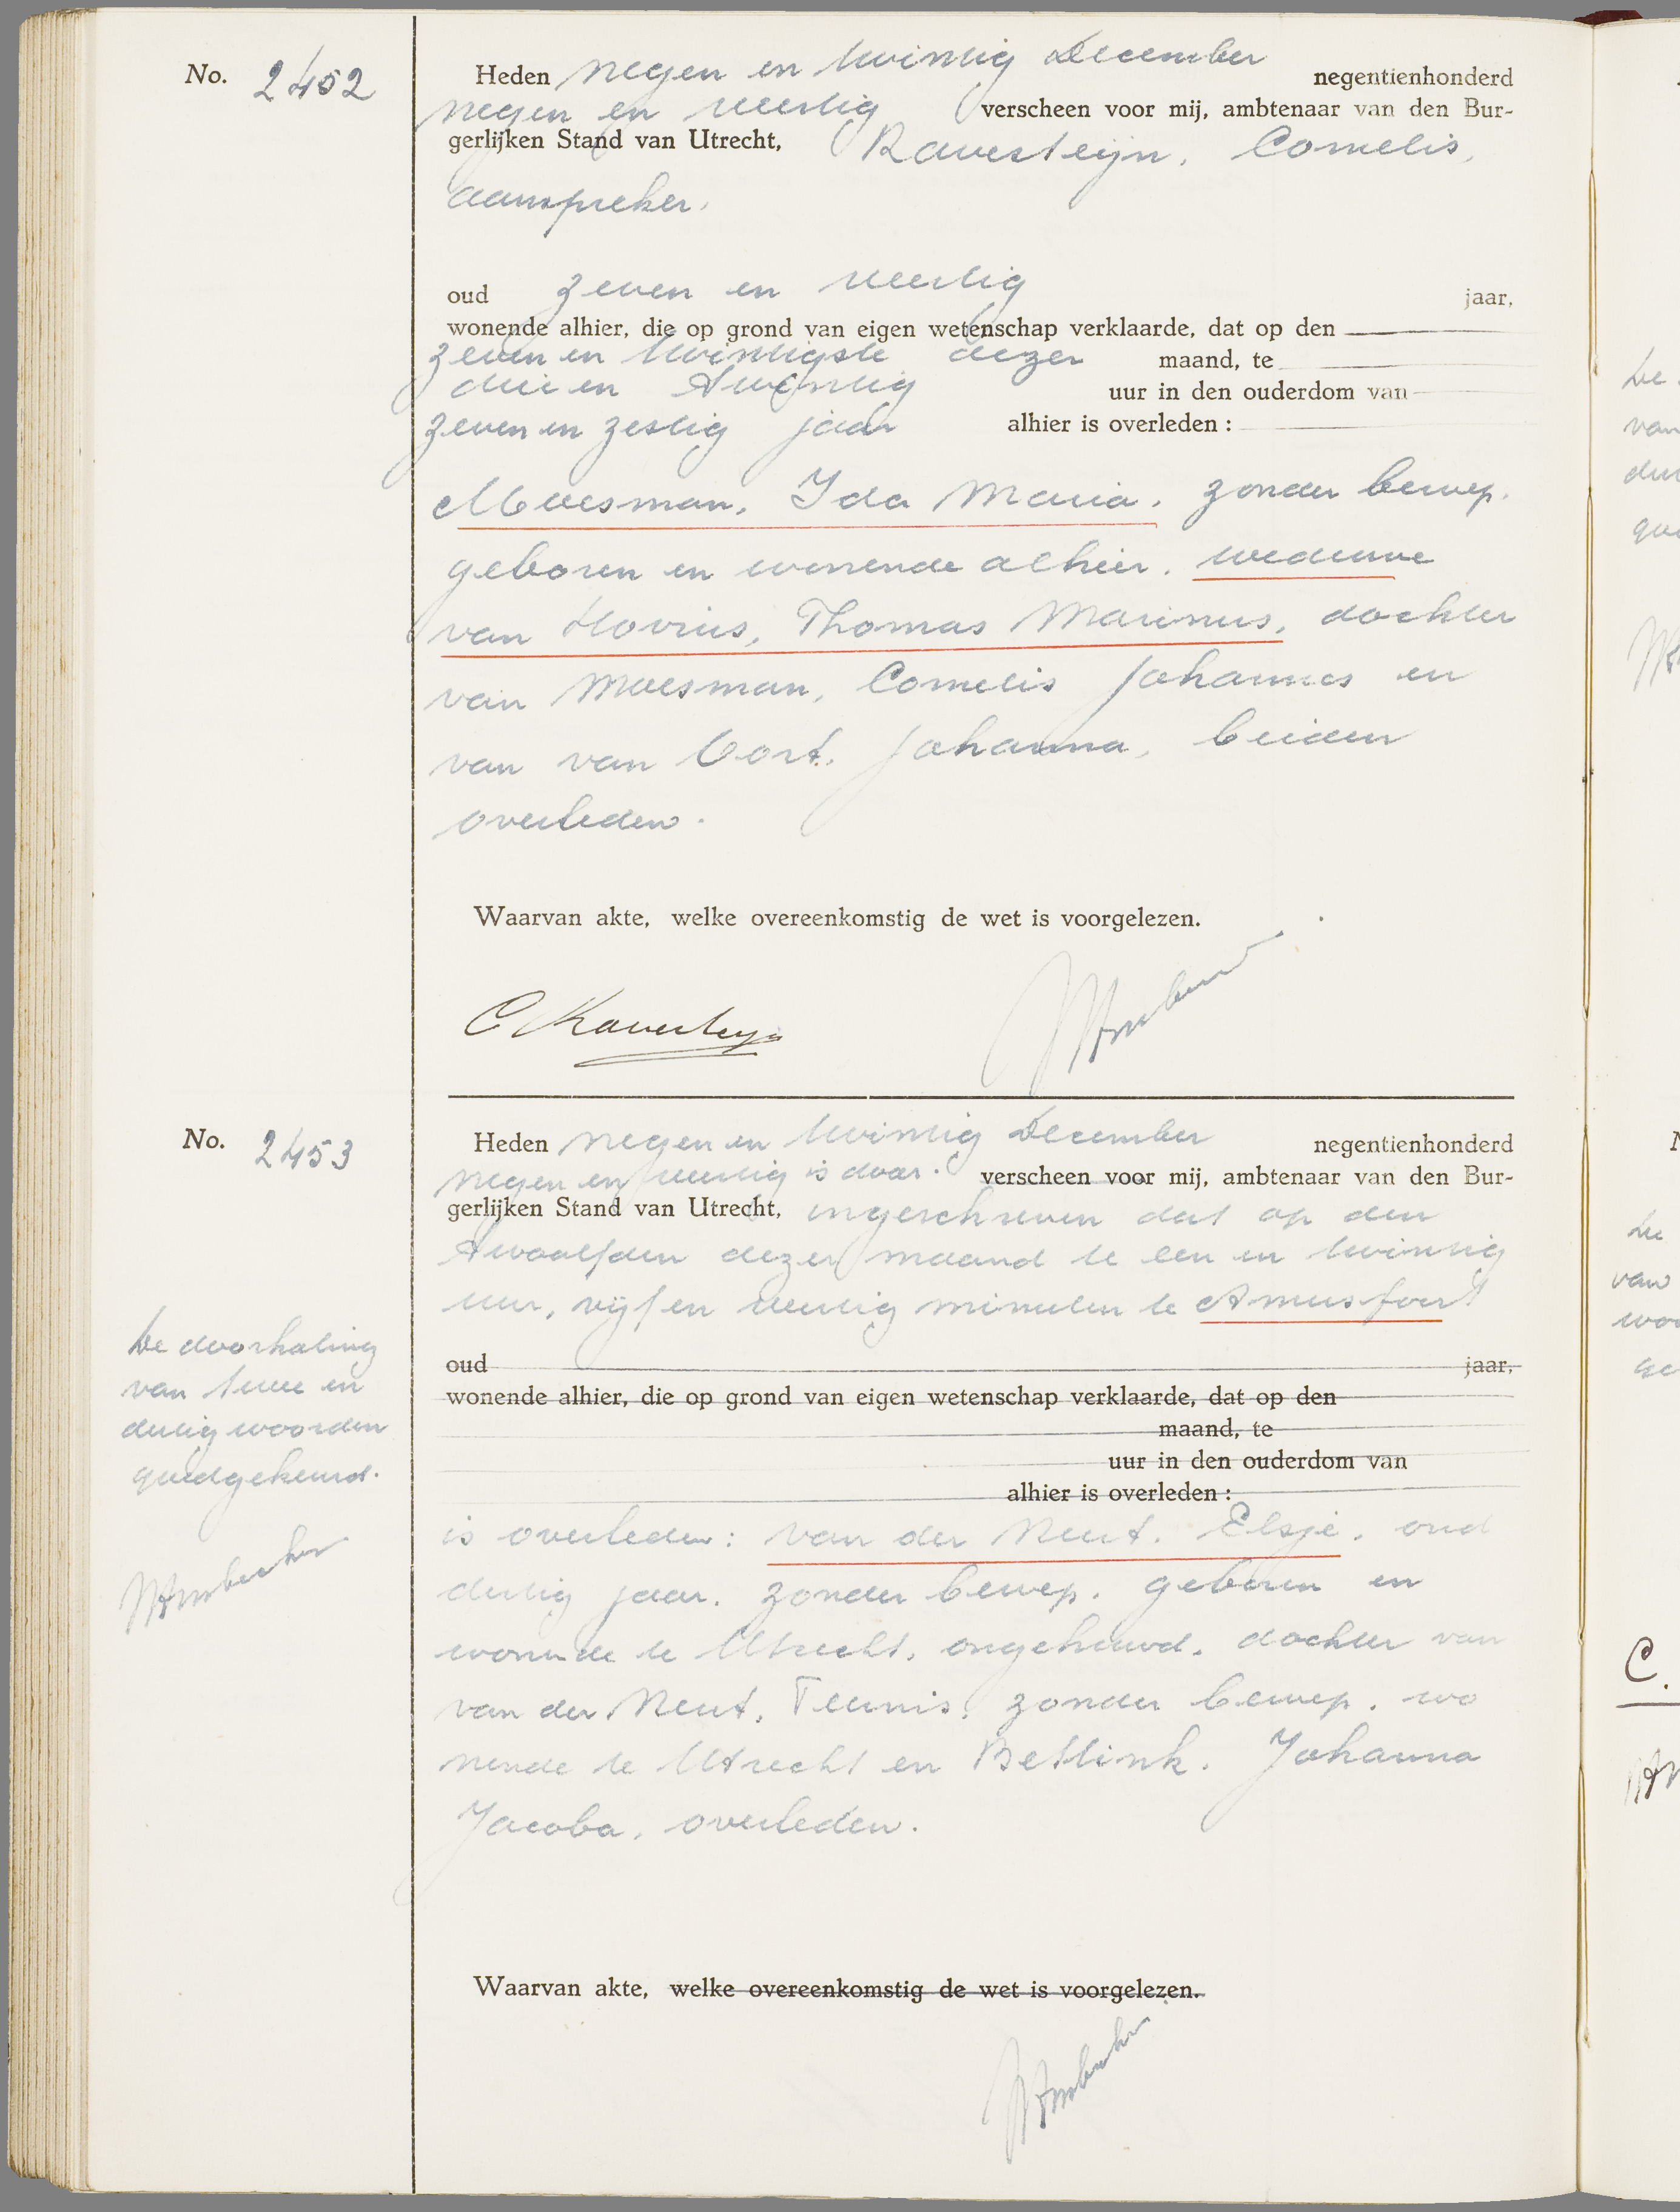 No. 2452
Heden negen en twintig December negentienhonderd
negen en veertig verscheen voor mij, ambtenaar van den Bur-
gerlijken Stand van Utrecht, Ravesteijn, Cornelis,
aanspreker,
oud zeven en veertig jaar,
wonende alhier, die op grond van eigen wetenschap verklaarde, dat op den
zeven en twintigste dezer maand, te
drie en twintig uur in den ouderdom van
zeven en zestig jaar alhier is overleden :
Moesman, Ida Maria, zonder beroep,
geboren en wonende alhier, weduwe
van Hovius, Thomas Marinus, dochter
van Moesman, Cornelis Johannes en
van van Oort, Johanna, beiden
overleden.
Waarvan akte, welke overeenkomstig de wet is voorgelezen.
C Ravesteyn
No. 2453
Heden negen en twintig December negentienhonderd
negen en veertig is door verscheen voor mij, ambtenaar van den Bur-
gerlijken Stand van Utrecht, ingeschreven dat op den
twaalfden dezer maand te een en twintig
uur, vijf en veertig minuten te Amersfoort
oud jaar,
wonende alhier, die op grond van eigen wetenschap verklaarde, dat op den
maand, te
uur in den ouderdom van
alhier is overleden :
is overleden: van der Neut, Elsje, oud
dertig jaar, zonder beroep, geboren en
wonende te Utrecht, ongehuwd, dochter van
van der Neut, Teunis, zonder beroep, wo
nende te Utrecht en Bettink, Johanna
Jacoba, overleden.
Waarvan akte, welke overeenkomstig de wet is voorgelezen.
De doorhaling
van twee en
dertig woorden
goedgekeurd.